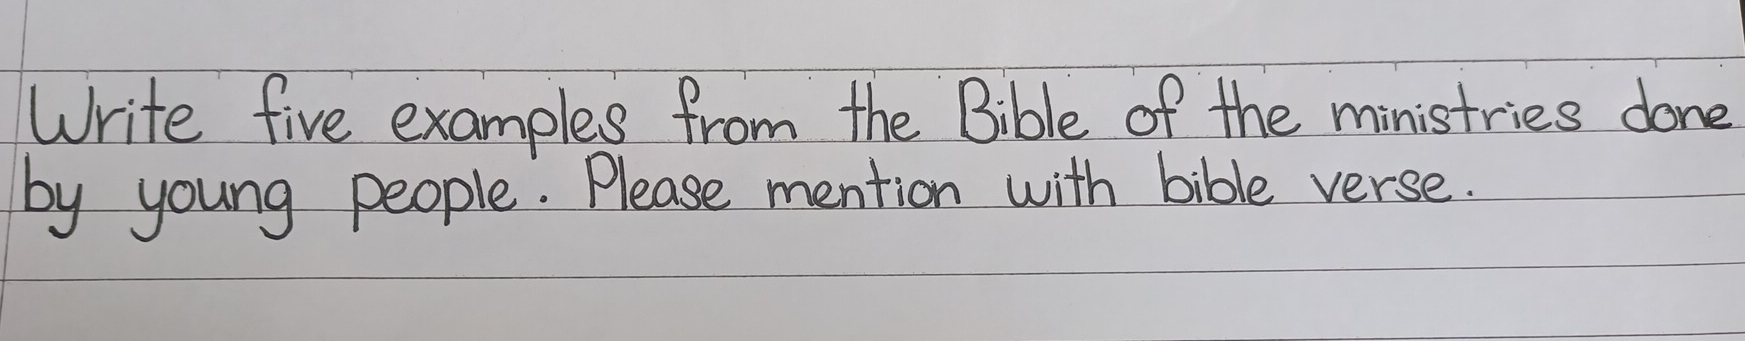 Write five examples from the Bible of the ministries done
by young people. Please mention with bible verse.